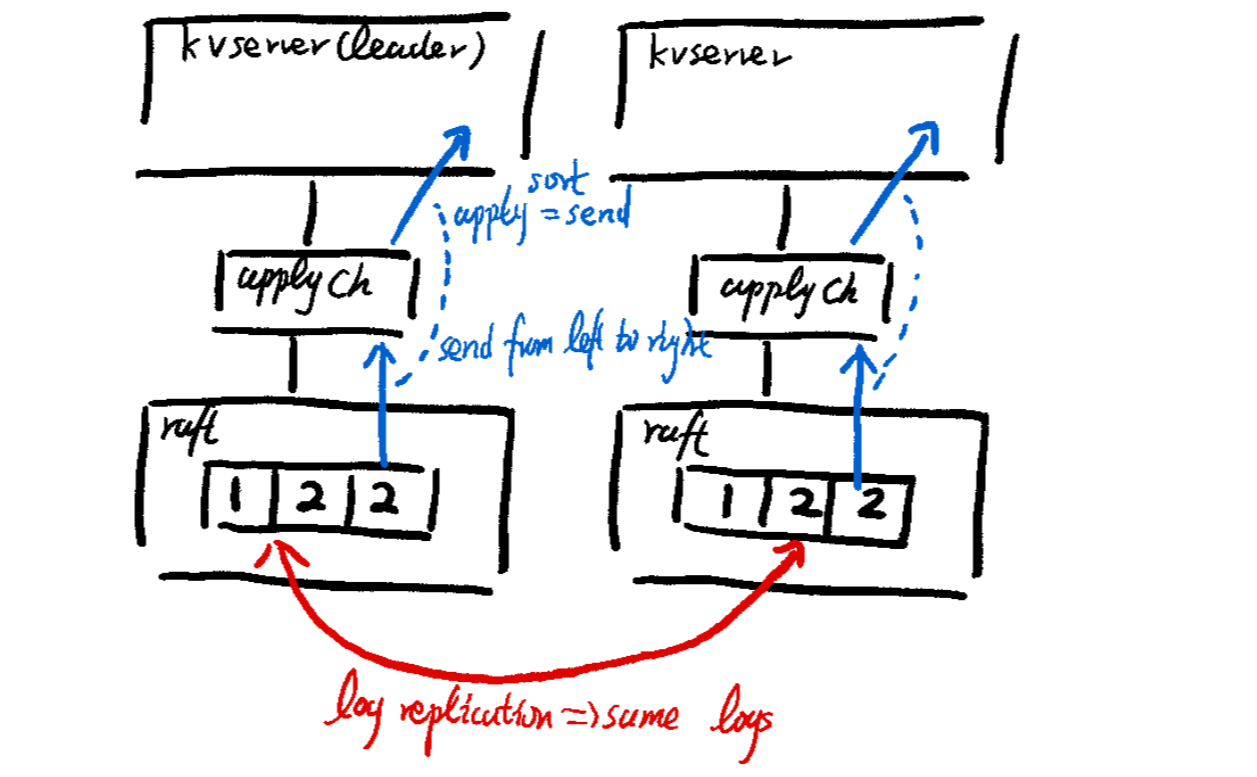 kvserver(leader)
kvserver
sort
apply = send
apply ch
apply ch
send from left to right
raft
raft
1 2 2
1 2 2
log replication => same logs